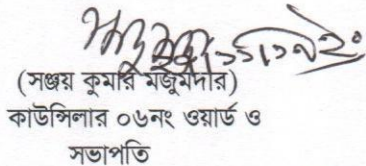 (সঞ্জয় কুমার মজুমদার)
কাউন্সিলার ০৬নং ওয়ার্ড ও
সভাপতি